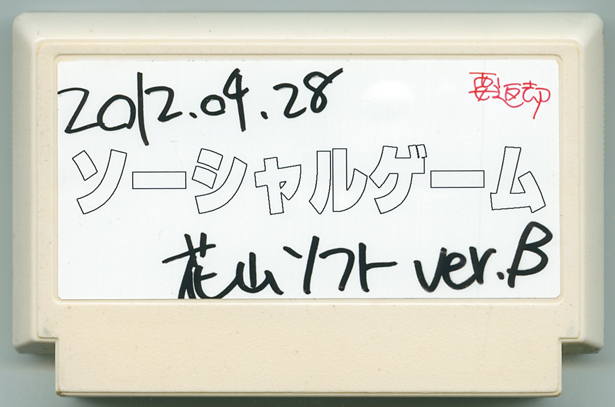 2012.04.28
要返却
ソーシャルゲーム
花山ソフト ver.B